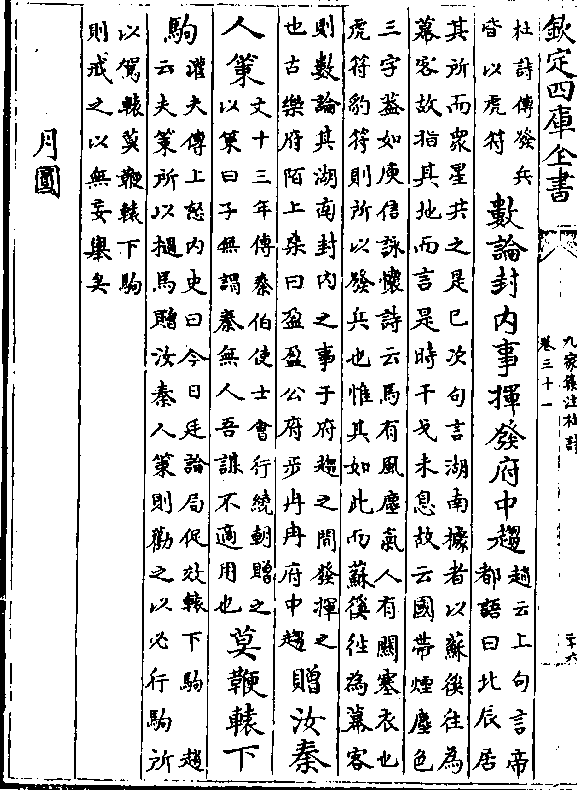 欽定四庫全書
九家集注杜詩
卷三十一
二十六
杜詩傳發兵
皆以虎符
數論封内事揮發府中趨
趙云上句言帝
都語曰北辰居
其所而衆星共之是已次句言湖南據者以蘇徯往為
幕客故指其地而言是時干戈未息故云國帶煙塵色
三字葢如庾信詠懷詩云馬有風塵氣人有關塞衣也
虎符豹符則所以發兵也惟其如此而蘇徯徃為幕客
則數論其湖南封内之事于府趨之間發揮之
也古樂府陌上桑曰盈盈公府步冉冉府中趨
贈汝秦
人策
文十三年傳秦伯使士會行繞朝贈之
以策曰子無謂秦無人吾謀不適用也
莫鞭轅下
駒
灌夫傳上怒内史曰今日廷論局促效轅下駒 趙
云夫策所以撾馬贈汝秦人策則勸之以必行駒所
以駕轅莫鞭轅下駒
則戒之以無妄舉矣
月圓